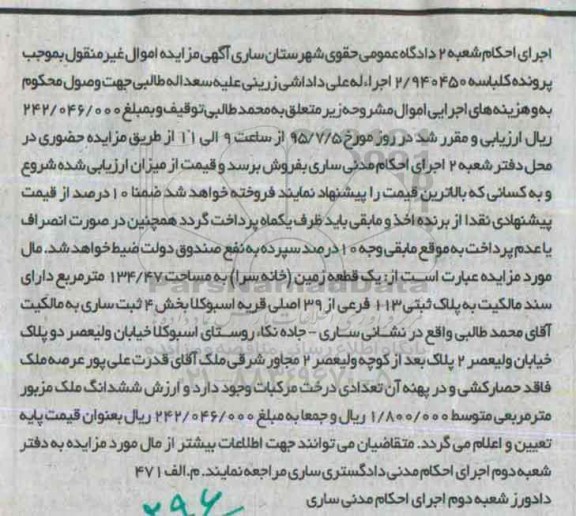 اجرای احکام شعبه ۲ دادگاه عمومی حقوی شهرستان ساری آگهی مزایده اموال غیر منقول بموجب
پرونده کلاسه ۲/۹۴۰۴۵۰ اجرا، له علی داداشی زرینی علیه سعداله طالبی جهت وصول محکوم
به و هزینه های اجرایی اموال مشروحه زیر متعلق به محمد طالبی توقیف و بمبلغ ۲۴۲/۰۴۶/۰۰۰
ریال ارزیابی و مقرر شد در روز مورخ ۹۵/۷/۵ از ساعت ۹ الی ۱۱ از طریق مزایده حضوری در
محل دفتر شعبه ۲ اجرای احکام مدنی ساری بفروش برسد و قیمت از میزان ارزیابی شده شروع
و به کسانی که بالاترین قیمت را پیشنهاد نمایند فروخته خواهد شد ضمنا ۱۰ درصد از قیمت
پیشنهادی نقدا از برنده اخذ و مابقی باید ظرف یکماه پرداخت گردد همچنین در صورت انصراف
یا عدم پرداخت به موقع مابقی وجه ۱۰ درصد سپرده به نفع صندوق دولت ضبط خواهد شد. مال
مورد مزایده عبارت است از: یک قطعه زمین (خانه سرا) به مساحت ۱۳۴/۴۷ مترمربع دارای
سند مالکیت به پلاک ثبتی ۱۱۳ فرعی از ۳۹ اصلی قریه اسبوکلا بخش ۴ ثبت ساری به مالکیت
آقای محمد طالبی واقع در نشانی ساری - جاده نکا، روستای اسبوکلا خیابان ولیعصر دو پلاک
خیابان ولیعصر ۲ پلاک بعد از کوچه ولیعصر ۲ مجاور شرقی ملک آقای قدرت علی پور عرصه ملک
فاقد حصارکشی و در پهنه آن تعدادی درخت مرکبات وجود دارد و ارزش ششدانگ ملک مزبور
مترمربعی متوسط ۱/۸۰۰/۰۰۰ ریال و جمعا به مبلغ ۲۴۲/۰۴۶/۰۰۰ ریال بعنوان قیمت پایه
تعیین و اعلام می گردد. متقاضیان می توانند جهت اطلاعات بیشتر از مال مورد مزایده به دفتر
شعبه دوم اجرای احکام مدنی دادگستری ساری مراجعه نمایند. م.الف ۴۷۱
دادورز شعبه دوم اجرای احکام مدنی ساری
۲۹۶